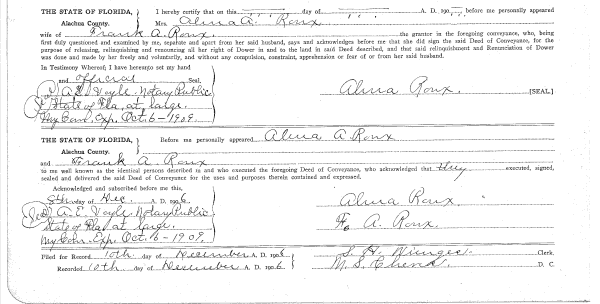 THE STATE OF FLORIDA, I hereby certify that on this day of A. D. 190 before me personally appeared
Alachua County. Mrs. Alma A. Roux
wife of Frank A. Roux. the grantor in the foregoing conveyance, who, being
first duly questioned and examined by me, separate and apart from her said husband, says and acknowledges before me that she did sign the said Deed of Conveyance, for the
purpose of releasing, relinquishing and renouncing all her right of Dower in and to the land in said Deed described, and that said relinquishment and Renunciation of Dower
was done and made by her freely and voluntarily, and without any compulsion, constraint, apprehension or fear of or from her said husband.
In Testimony Whereof, I have hereunto set my hand
and official Seal,
A. E. Voyle. Notary Public
State of Fla, at large.
My Com. Exp. Oct. 6 - 1909.
Alma Roux. [SEAL.]
THE STATE OF FLORIDA, Before me personally appeared Alma A. Roux
Alachua County.
and Frank A. Roux
to me well known as the identical persons described in and who executed the foregoing Deed of Conveyance, who acknowledged that they executed, signed,
sealed and delivered the said Deed of Conveyance for the uses and purposes therein contained and expressed.
Acknowledged and subscribed before me this,
8th day of Dec. A. D. 1906
Seal A. E. Voyle Notary Public
State of Fla, at large.
My Com. Exp. Oct. 6 - 1909.
Alma Roux.
F. A. Roux.
Filed for Record 10th day of December A. D. 1906
Recorded 10th day of December A. D. 1906
S. H. Wienges. Clerk.
D. C.